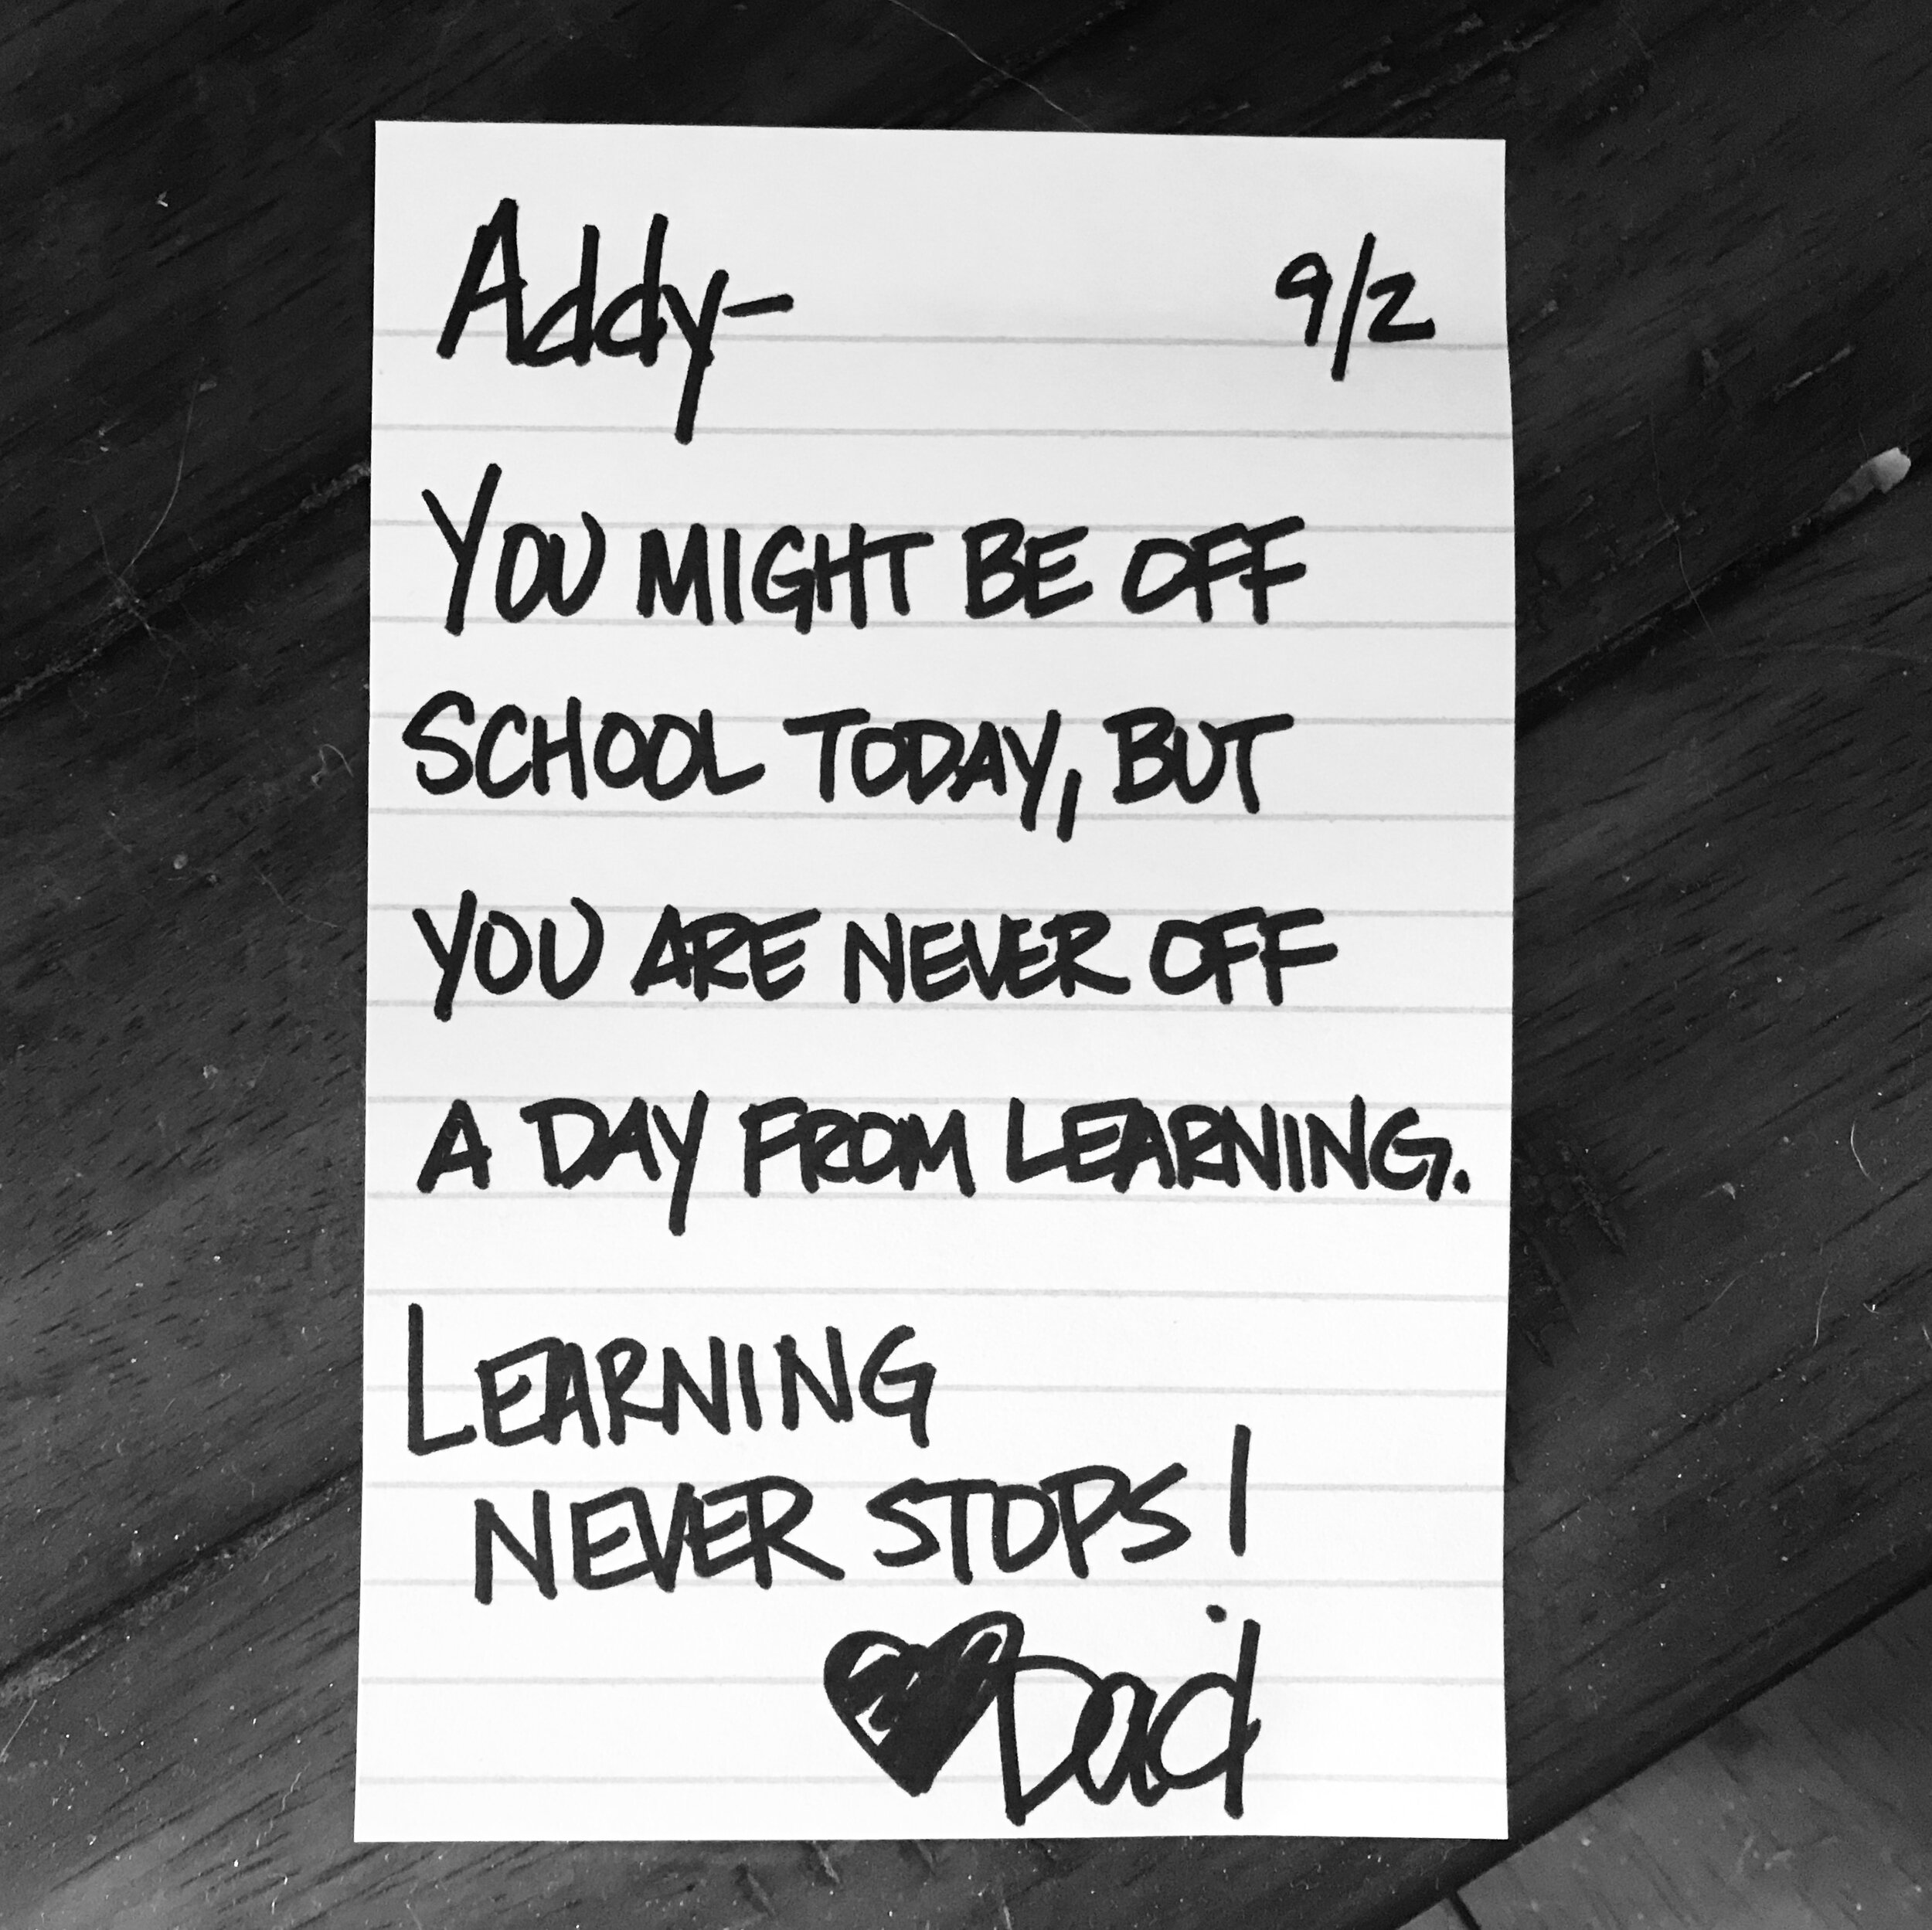 Addy- 9/2
YOU MIGHT BE OFF
SCHOOL TODAY, BUT
YOU ARE NEVER OFF
A DAY FROM LEARNING.
LEARNING
NEVER STOPS!
Dad